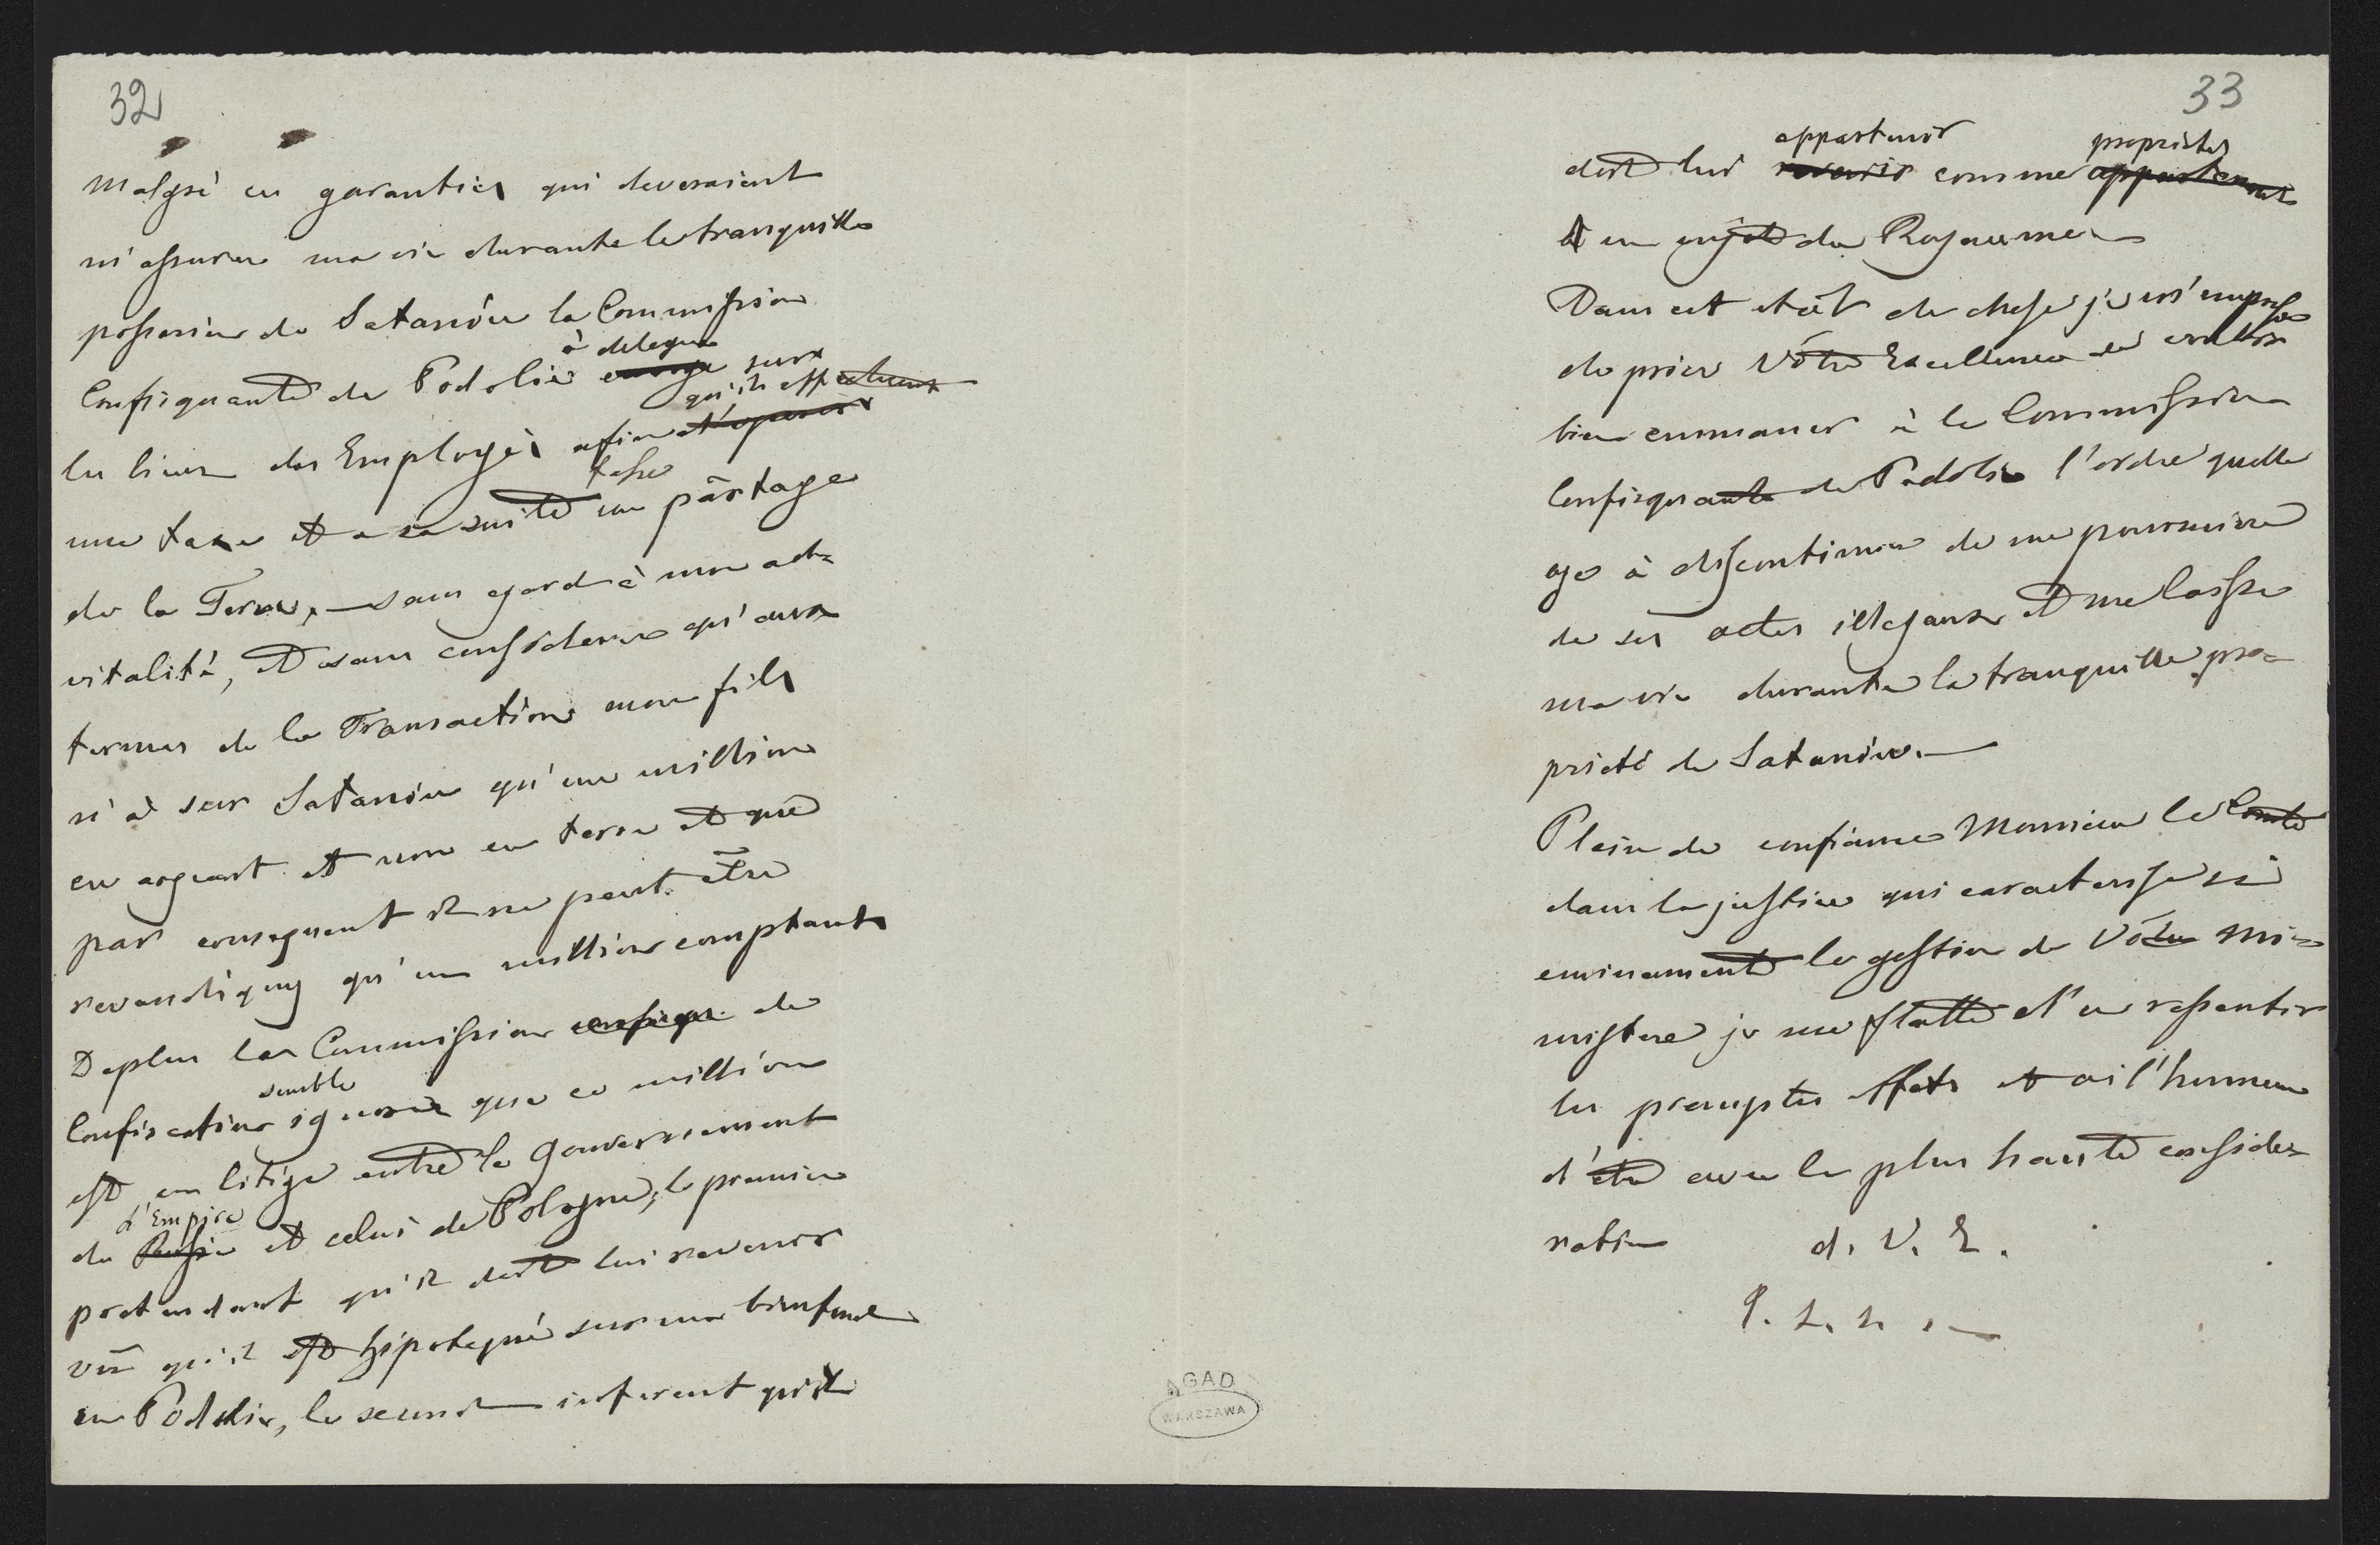 32
Malgré ces garanties qui deveraient
m'assurer ma vie durante la tranquille
possession de Satanów la Commission
à delegué
Confisquante de Podolie envoye sur
qu'ils effectuent
les lieux des Employés afin d'operer
une taxe et a sa suite un partage
de la Terre, — sans egard à mon ad=
vitalité, et sans considerer qu'aux
termes de la Transaction mon fils
n'a sur Satanów qu'un million
en argeant et non en terre et que
par consequent il ne peut être
revandiqué qu'un million comptant
De plus la Commission confisqu. de
semble
Confiscation ignorer que ce million
est en litige entre le gouvernement
d'Empire
de Russie et celui de Pologne; le premier
pretendant qu'il doit lui revenir
vû qu'il est hipotequé sur un bienfond
en Podolie, le second inferent qu'il
33
appartenir propriétés
doit lui revenir comme appartenant
à un sujet du Royaume
Dans cet etat de chose je m'empresse
de prier Vôtre Excellence de vouloir
bien emmaner à la Commission
Confisquante de Podolie l'ordre quelle
aye à discontinuer de me poursuivre
de ses actes illegaux et me laisse
ma vie durante la tranquille pro=
prieté de Satanów. —
Plein de confiance Monsieur le Comte
dans la justice qui caracterise si
eminament la gestion de Vôtre Mi=
nistere je me flatte d'en ressentir
les promptes effets et ai l'honneur
d'être avec la plus haute conside=
ration d. V. E.
AGAD
WARSZAWA